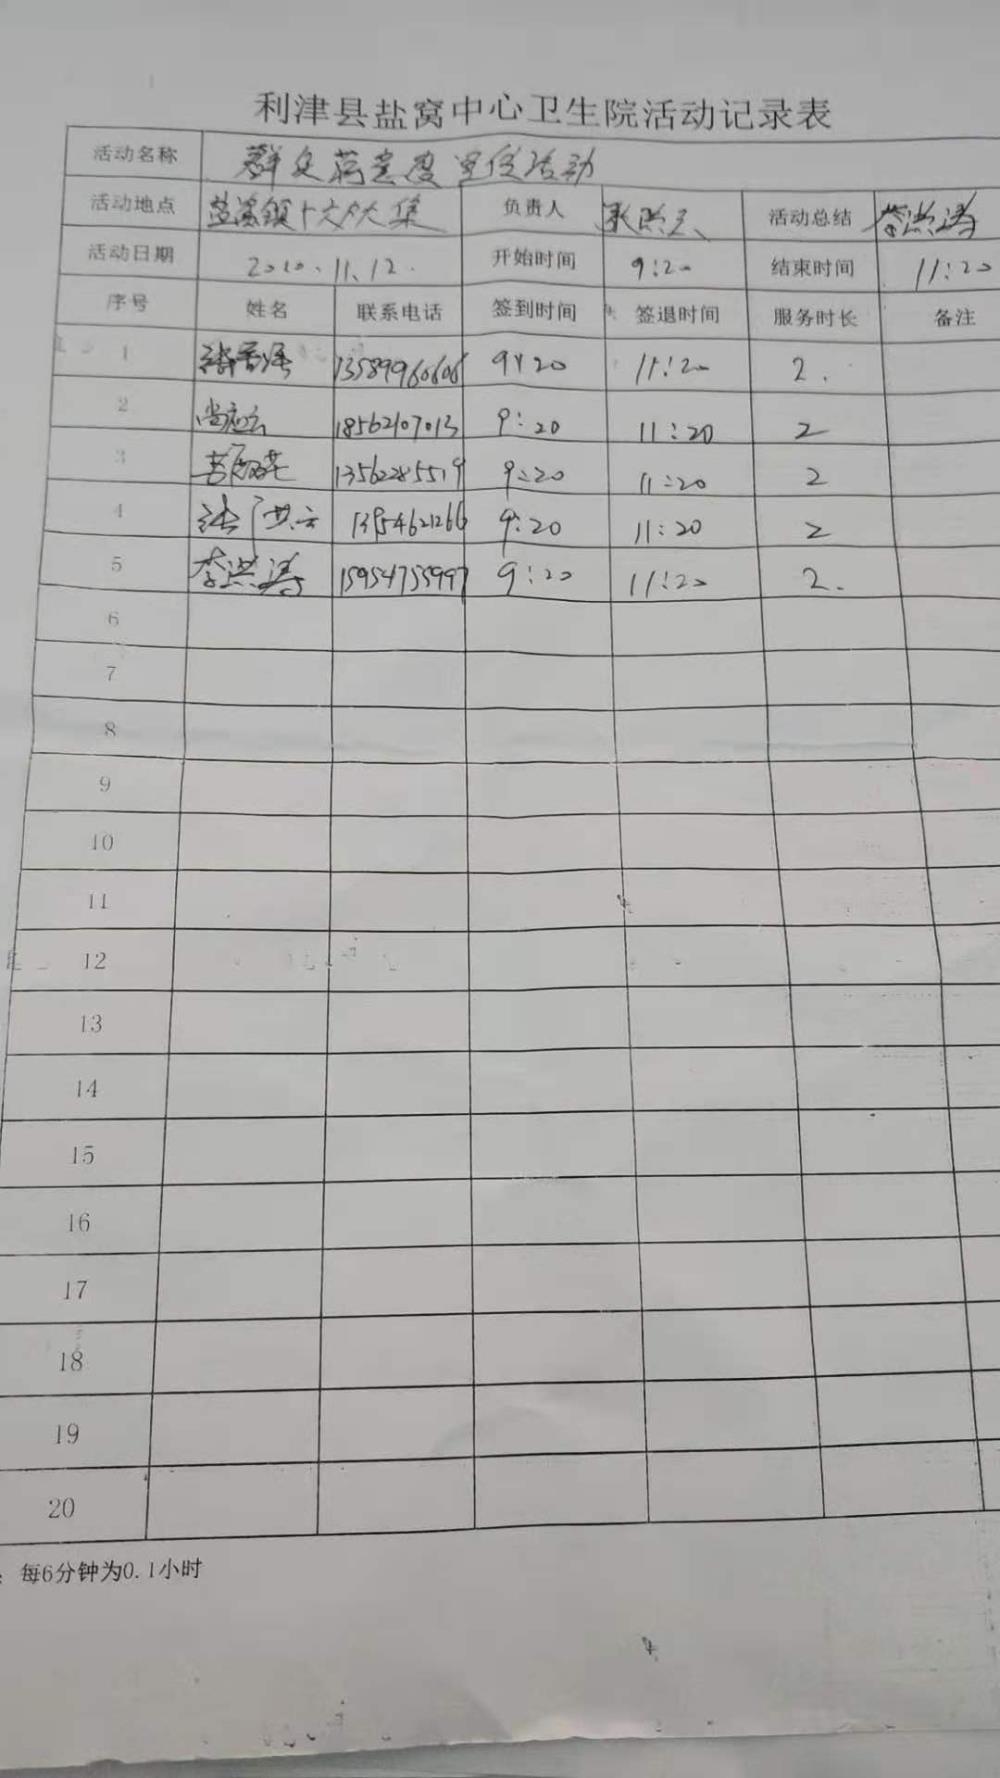 利津县盐窝中心卫生院活动记录表
活动名称 群众满意度宣传活动
活动地点 盐窝镇十六户大集 负责人 活动总结 李洪涛
活动日期 2020.11.12. 开始时间 9:20 结束时间 11:20
序号 姓名 联系电话 签到时间 签退时间 服务时长 备注
1 13589960606 9:20 11:20 2.
2 尚 18562107013 9:20 11:20 2
3 13562285519 9:20 11:20 2
4 张 13954621266 9:20 11:20 2
5 李洪涛 15954755997 9:20 11:20 2.
6
7
8
9
10
11
12
13
14
15
16
17
18
19
20
: 每6分钟为0.1小时